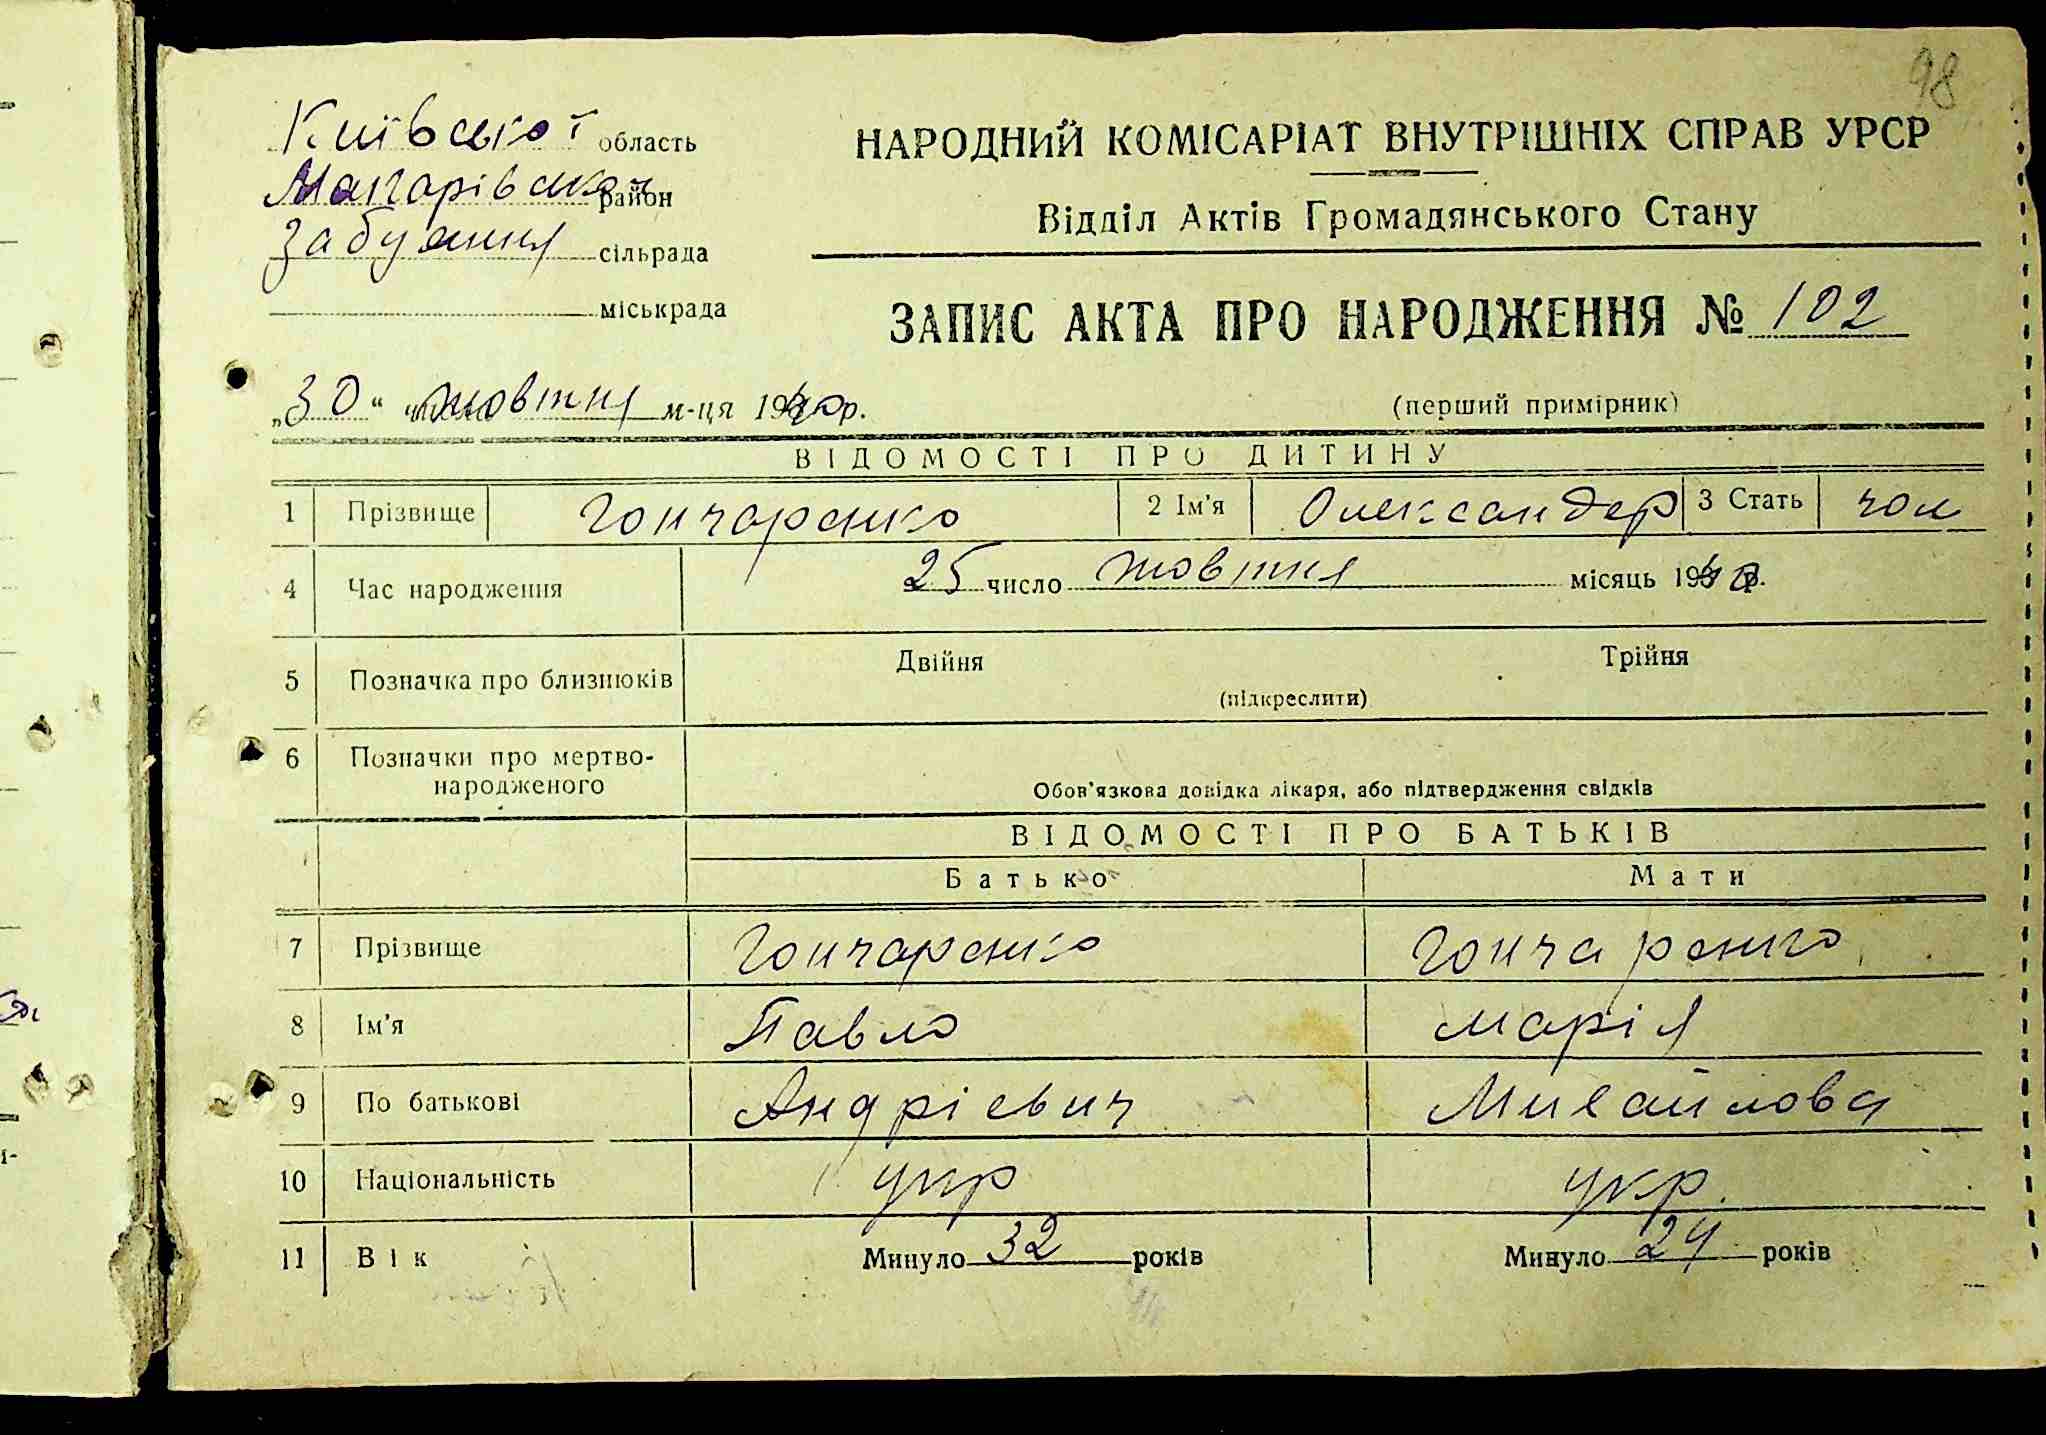 98
Київської область
Макарівської район
Забуяння сільрада
міськрада
НАРОДНИЙ КОМІСАРІАТ ВНУТРІШНІХ СПРАВ УРСР
Відділ Актів Громадянського Стану
ЗАПИС АКТА ПРО НАРОДЖЕННЯ № 102
„30“ жовтня м-ця 1940 р.
(перший примірник)
ВІДОМОСТІ ПРО ДИТИНУ
1 Прізвище Гончаренко 2 Ім'я Олександер 3 Стать чол
4 Час народження 25 число жовтня місяць 1940 р.
5 Позначка про близнюків Двійня Трійня
(підкреслити)
6 Позначки про мертво-
народженого
Обов'язкова довідка лікаря, або підтвердження свідків
ВІДОМОСТІ ПРО БАТЬКІВ
Батько Мати
7 Прізвище Гончаренко Гончаренко
8 Ім'я Павло Марія
9 По батькові Андрієвич Михайлова
10 Національність укр укр.
11 Вік Минуло 32 років Минуло 24 років